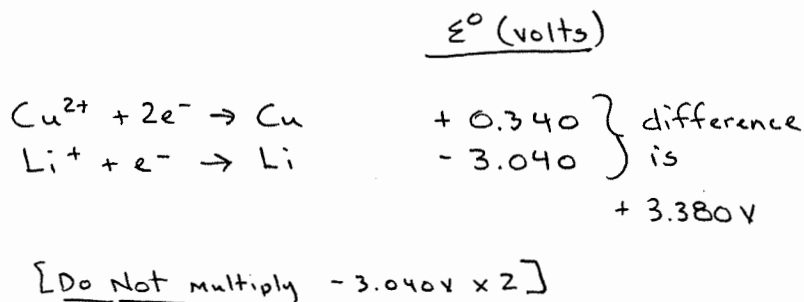 ε° (volts)
Cu²⁺ + 2e⁻ → Cu + 0.340 } difference
Li⁺ + e⁻ → Li - 3.040 is
+ 3.380 V
[Do Not Multiply - 3.040V x 2]